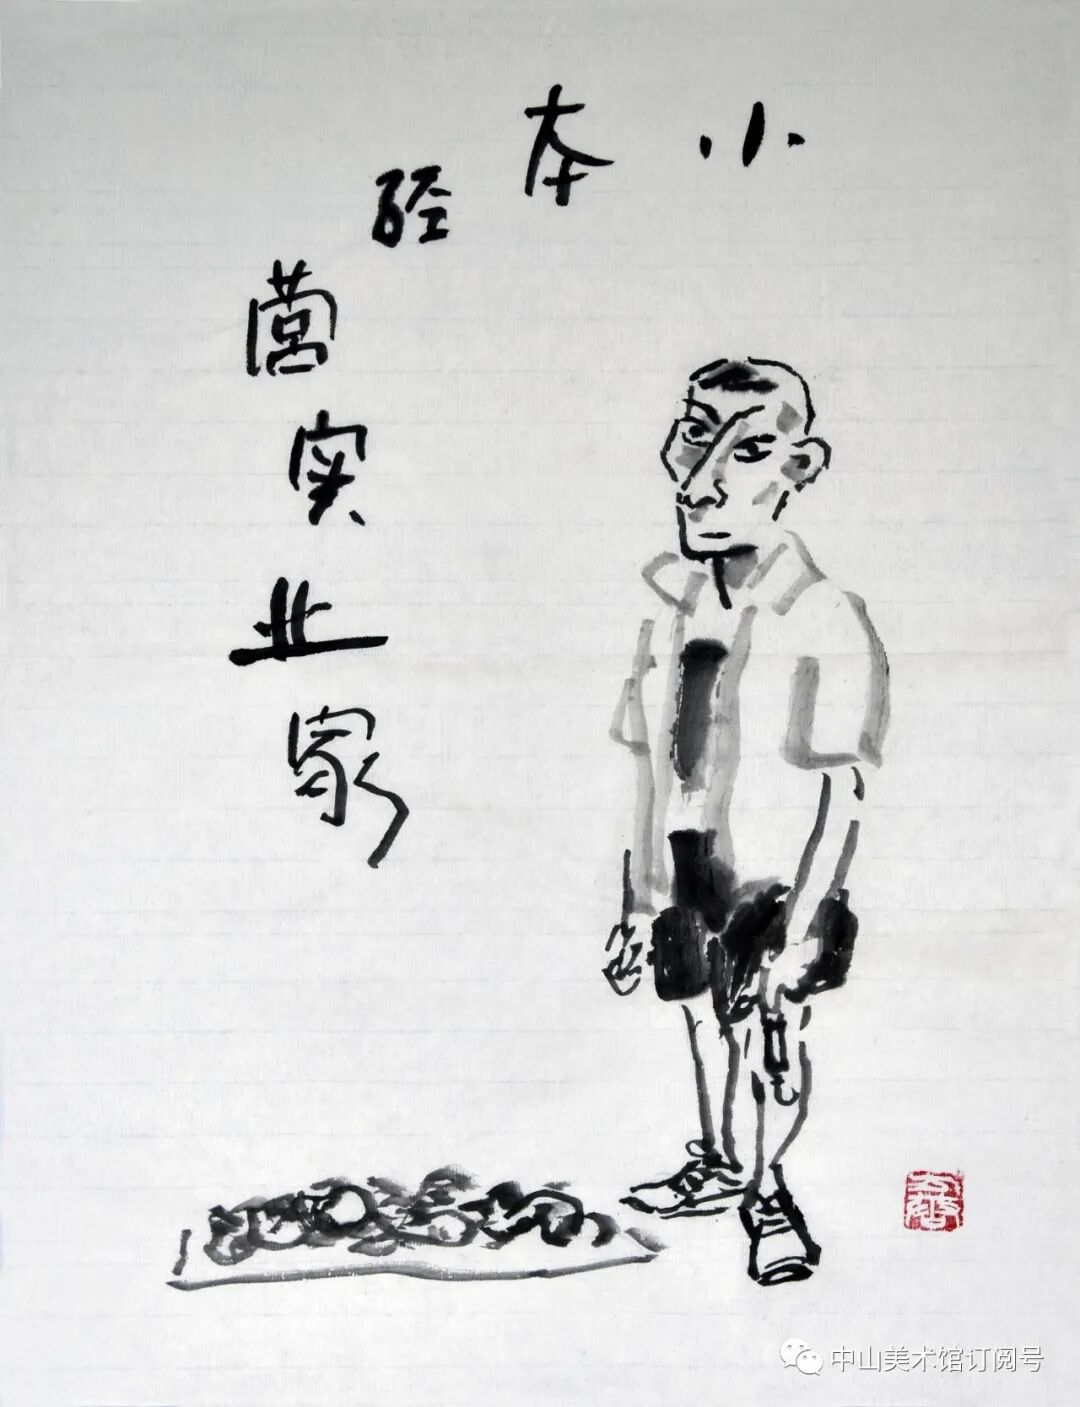 小本经营实业家
中山美术馆订阅号